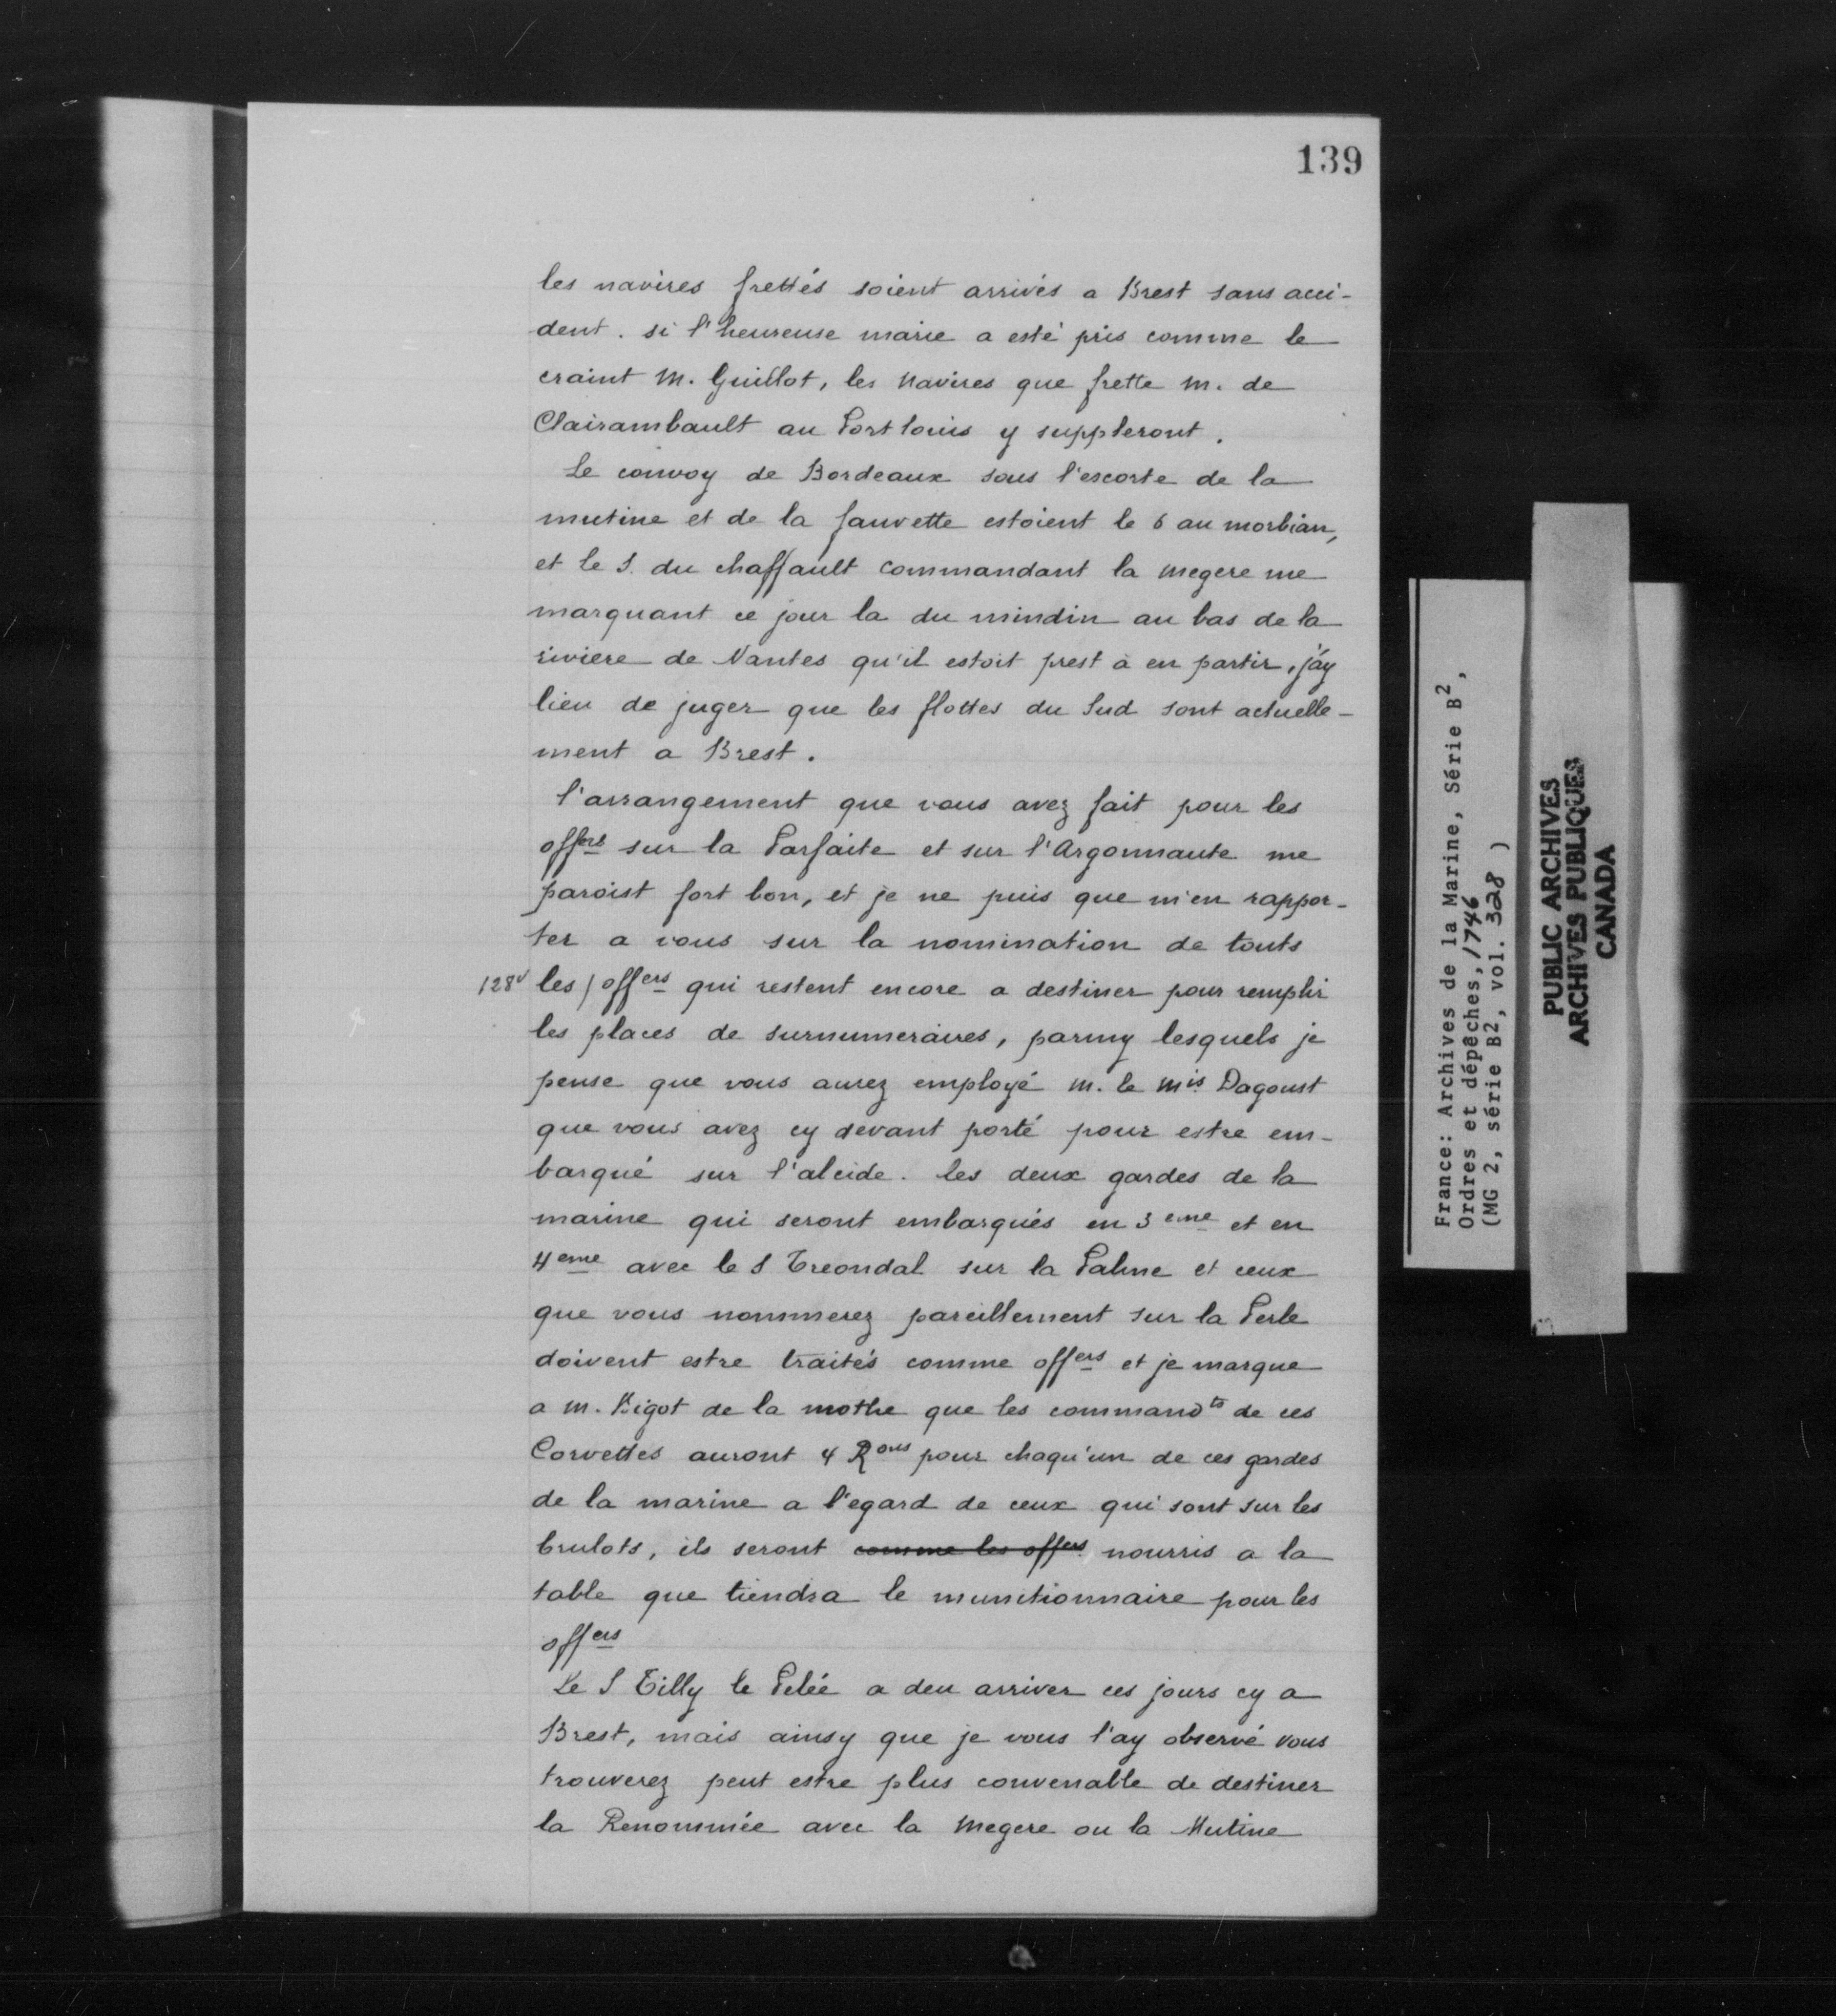 139
les navires frettés soient arrivés a Brest sans acci-
dent. si l'heureuse marie a esté pris comme le
craint M. Guillot, les navires que frette M. de
Clairambault au Port louis y suppleront.
Le convoy de Bordeaux sous l'escorte de la
mutine et de la fauvette estoient le 6 au morbian,
et le S. du chaffault commandant la megere me
marquant ce jour la du mindin au bas de la
riviere de Nantes qu'il estoit prest à en partir, j'ay
lieu de juger que les flottes du Sud sont actuelle-
ment a Brest.
l'arrangement que vous avez fait pour les
offers sur la Parfaite et sur l'Argonnaute me
paroist fort bon, et je ne puis que m'en rappor-
ter a vous sur la nomination de touts
128v les / offers qui restent encore a destiner pour remplir
les places de surnumeraires, parmy lesquels je
pense que vous aurez employé M. le Mis Dagoust
que vous avez cy devant porté pour estre em-
barqué sur l'alcide. les deux gardes de la
marine qui seront embarqués en 3eme et en
4eme avec le S Treondal sur la Palme et ceux
que vous nommerez pareillement sur la Perle
doivent estre traités comme offers et je marque
a M. Bigot de la mothe que les commandts de ces
Corvettes auront 4 Rons pour chaqu'un de ces gardes
de la marine a l'egard de ceux qui sont sur les
brulots, ils seront comme les offers nourris a la
table que tiendra le munitionnaire pour les
offers
Le S Tilly le Pelée a deu arriver ces jours cy a
Brest, mais ainsy que je vous l'ay observé vous
trouverez peut estre plus convenable de destiner
la Renommée avec la Megere ou la Mutine
France: Archives de la Marine, Série B2,
Ordres et dépêches, 1746
(MG 2, série B2, vol. 328 )
PUBLIC ARCHIVES
ARCHIVES PUBLIQUES
CANADA